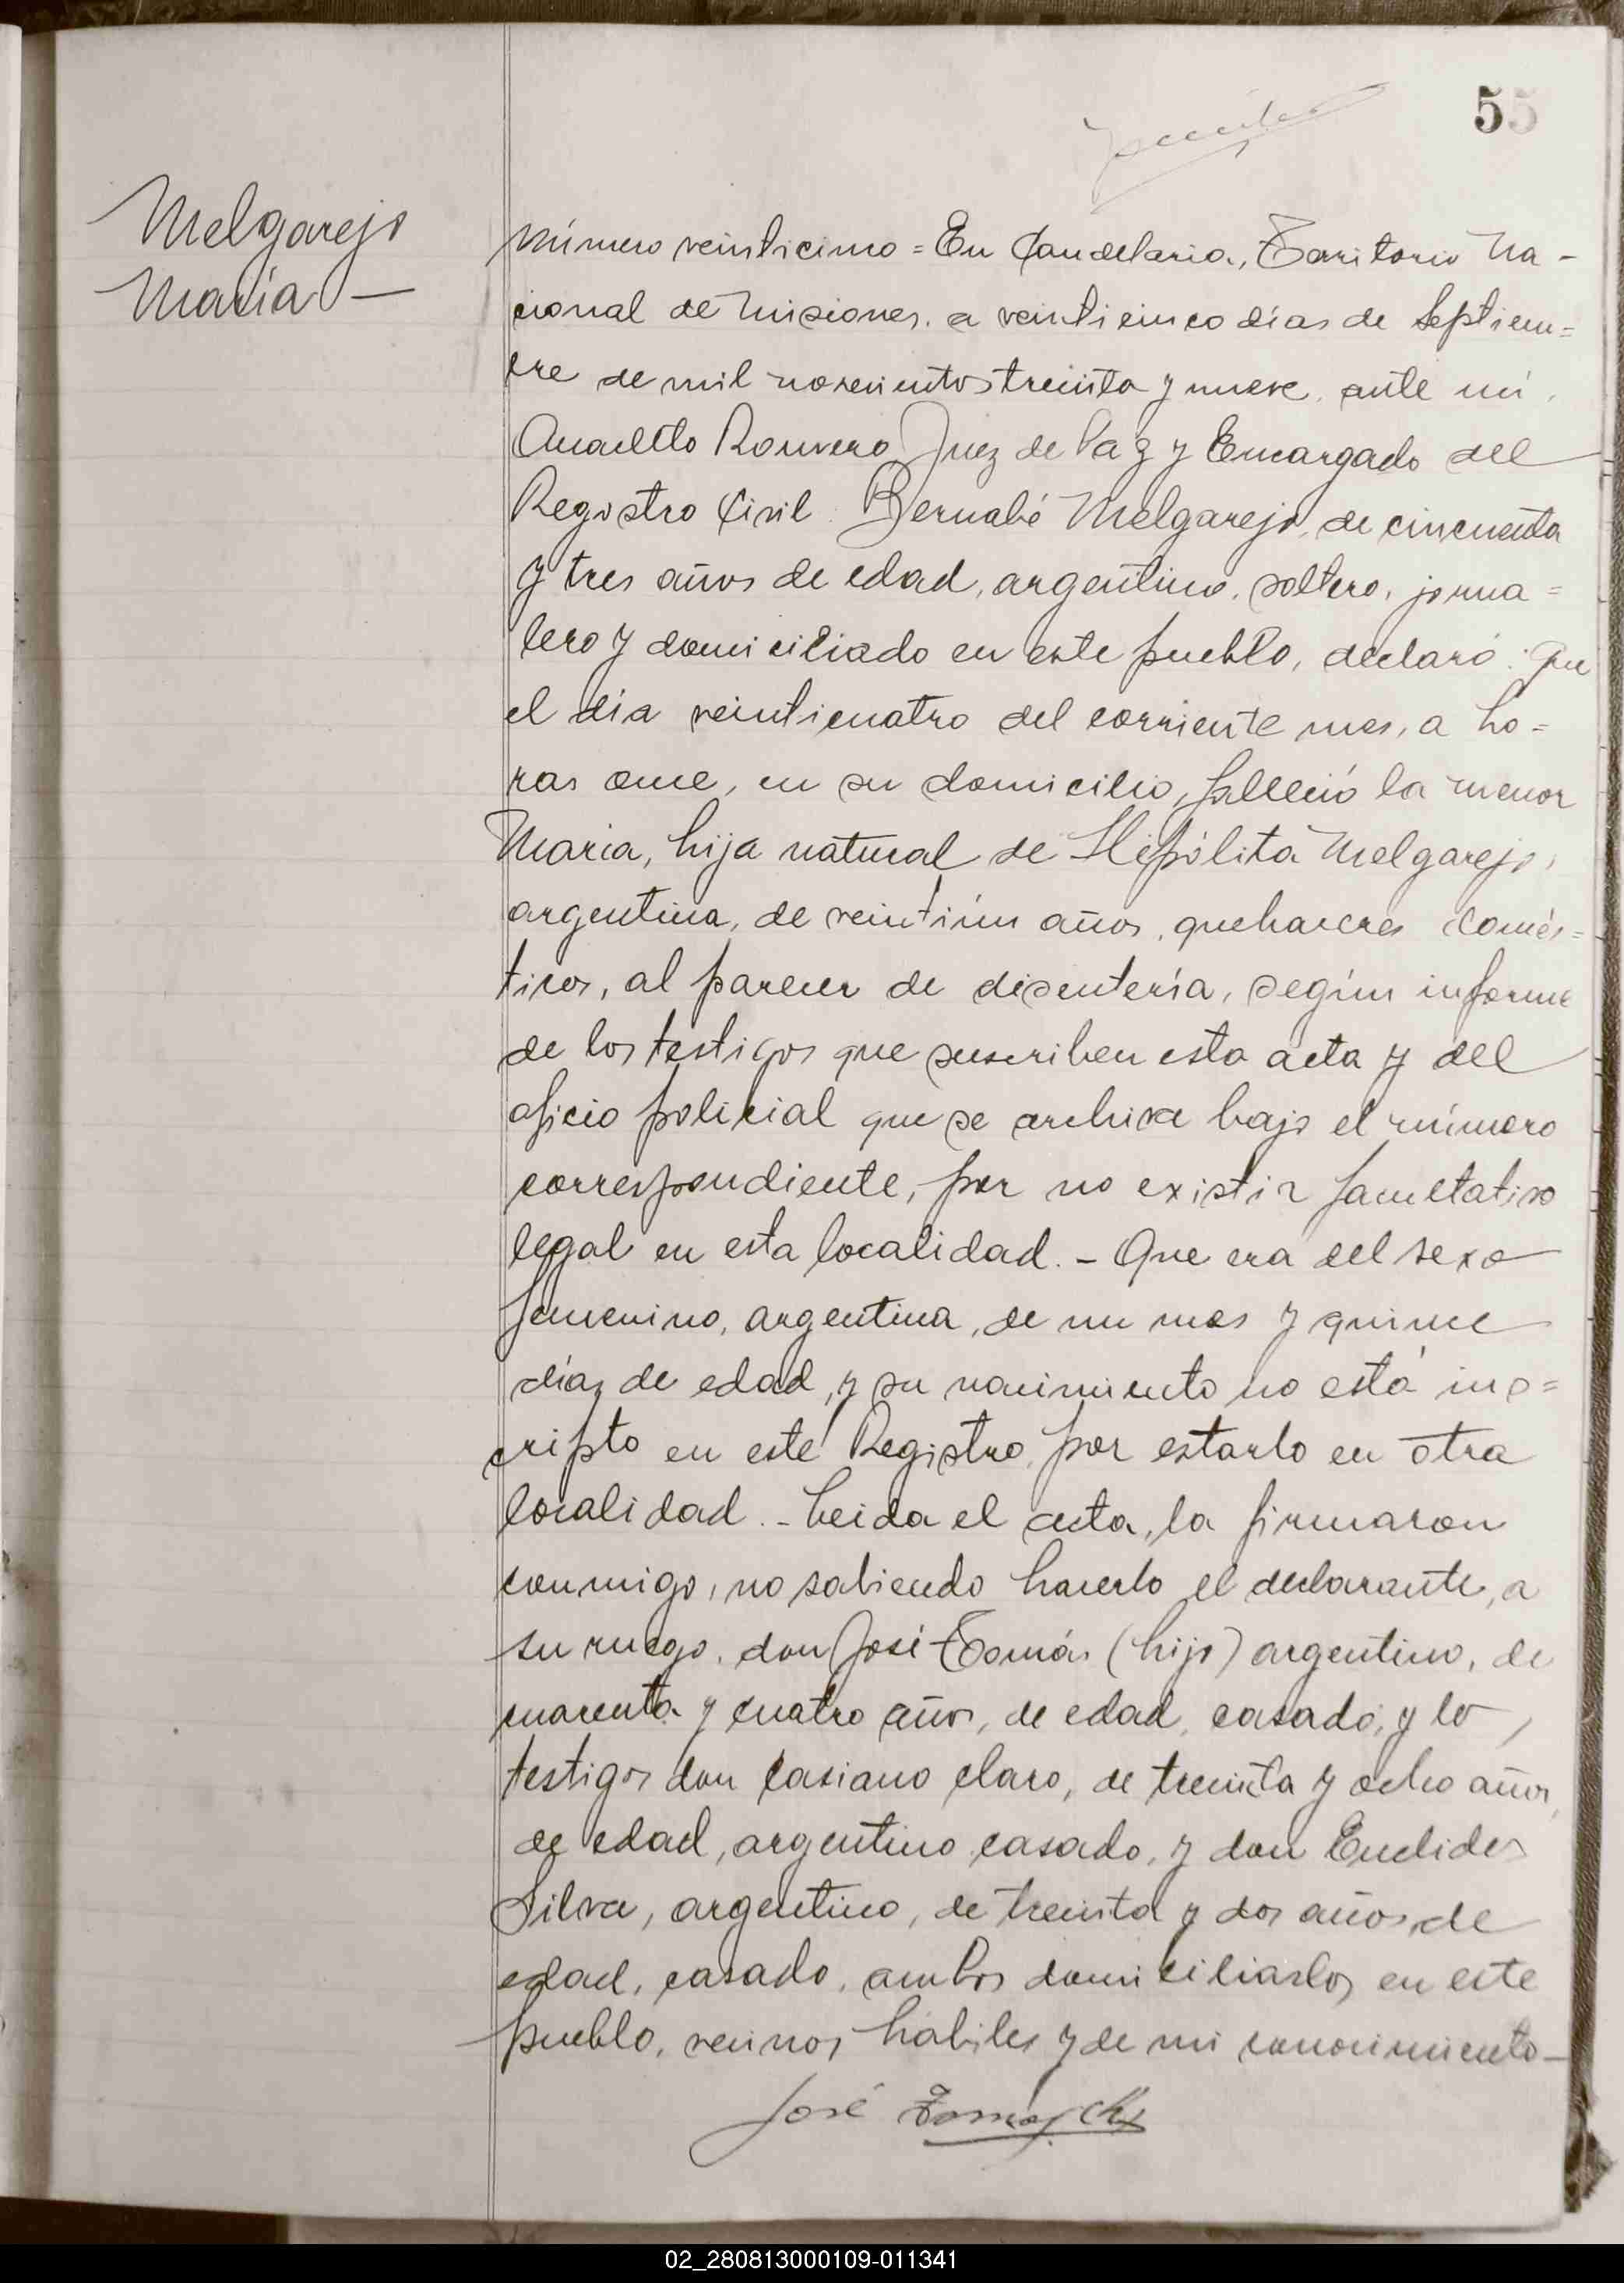 55
Melgarejo
María —
Número veinticinco = En Candelaria, Territorio Na-
cional de Misiones. a veinticinco días de Septiem=
bre de mil novecientos treinta y nueve, ante mí,
Romero Juez de Paz y Encargado del
Registro Civil. Bernabé Melgarejo, de cincuenta
y tres años de edad, argentino, soltero, jorna=
lero y domiciliado en este pueblo, declaró: que
el día veinticuatro del corriente mes, a ho=
ras once, en su domicilio, falleció la menor
María, hija natural de Hipólita Melgarejo,
argentina, de veintiún años, quehaceres domés=
ticos, al parecer de disentería, según informe
de los testigos que suscriben esta acta y del
oficio policial que se archiva bajo el número
correspondiente, por no existir facultativo
legal en esta localidad. - Que era del sexo
femenino, argentina, de un mes y quince
días de edad, y su nacimiento no está ins=
cripto en este Registro, por estarlo en otra
localidad. - Leida el acta, la firmaron
conmigo, no sabiendo hacerlo el declarante, a
su ruego, don José Tomás (hijo) argentino, de
cuarenta y cuatro años, de edad, casado, y lo,
testigos don Casiano Claro, de treinta y ocho años,
de edad, argentino casado, y don Euclides
Silva, argentino, de treinta y dos años, de
edad, casado, ambos domiciliados en este
pueblo, vecinos hábiles y de mi conocimiento —
José Tomás (h)
02_280813000109-011341